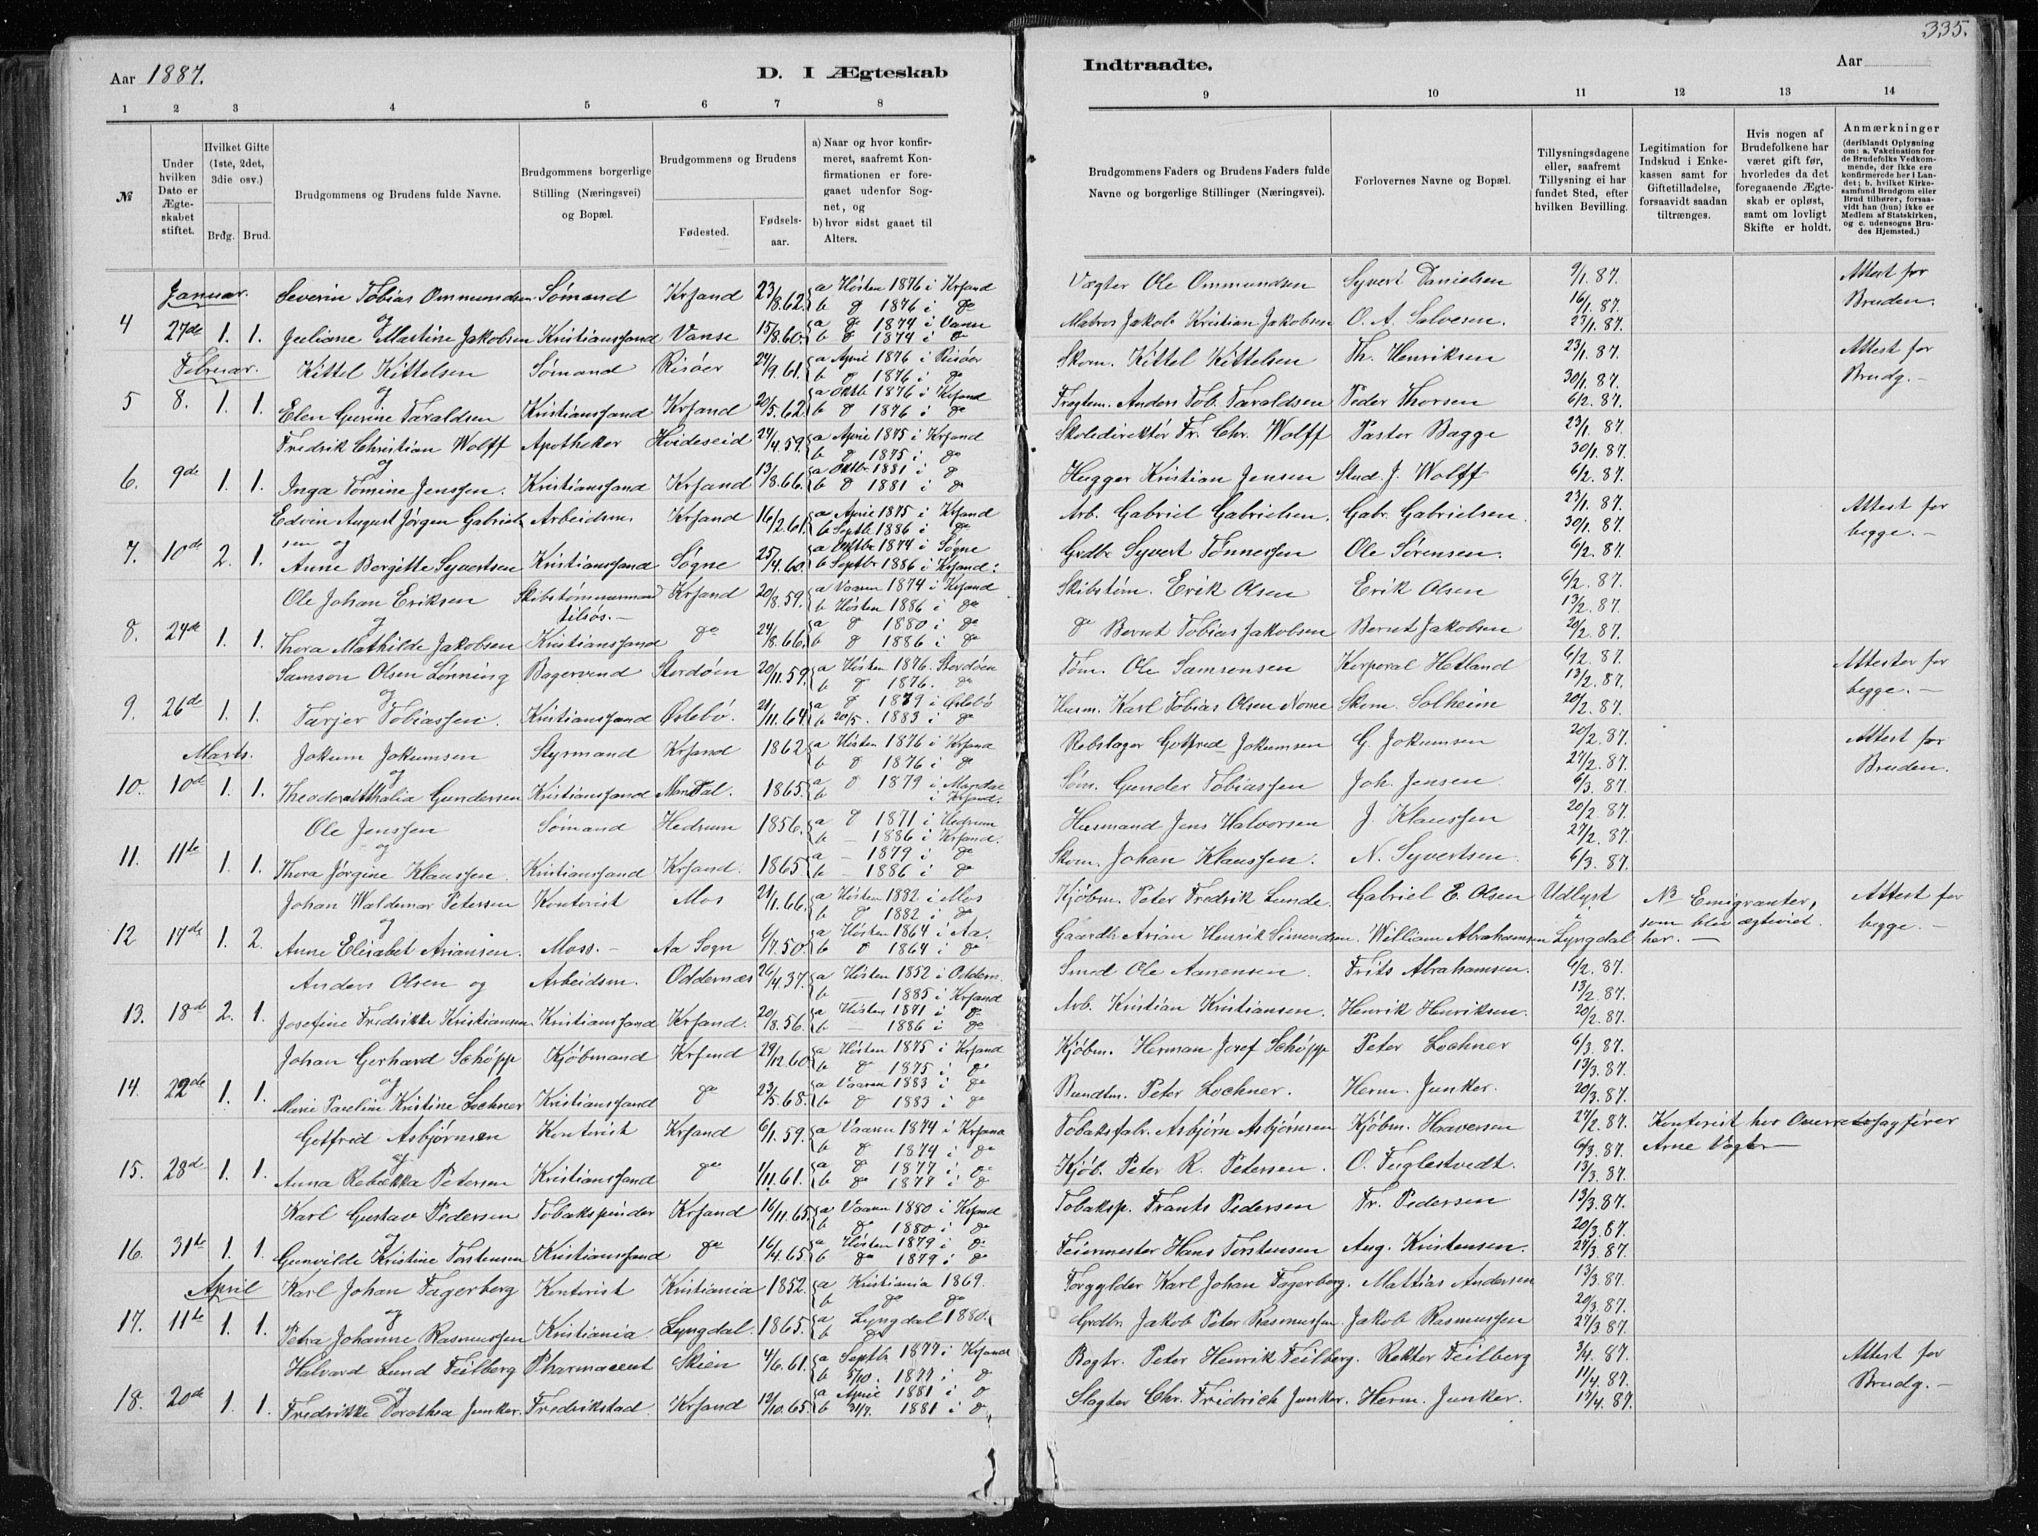 335.
Aar 1887.
D. I Ægteskab
Indtraadte.
Aar
1 2 3 4 5 6 7 8
9 10 11 12 13 14
№
Under hvilken Dato er Ægteskabet stiftet.
Hvilket Gifte (1ste, 2det, 3die osv.)
Brdg. Brud.
Brudgommens og Brudens fulde Navne.
Brudgommens borgerlige Stilling (Næringsvei) og Bopæl.
Brudgommens og Brudens
Fødested. Fødselsaar.
a) Naar og hvor konfirmeret, saafremt Konfirmationen er foregaaet udenfor Sognet, og
b) hvor sidst gaaet til Alters.
Brudgommens Faders og Brudens Faders fulde Navne og borgerlige Stillinger (Næringsvei).
Forlovernes Navne og Bopæl.
Tillysningsdagene eller, saafremt Tillysning ei har fundet Sted, efter hvilken Bevilling.
Legitimation for Indskud i Enkekassen samt for Giftetilladelse, forsaavidt saadan tiltrænges.
Hvis nogen af Brudefolkene har været gift før, hvorledes da det foregaaende Ægteskab er opløst, samt om lovligt Skifte er holdt.
Anmærkninger (deriblandt Oplysning om: a. Vakcination for de Brudefolks Vedkommende, der ikke ere konfirmerede her i Landet; b. hvilket Kirkesamfund Brudgom eller Brud tilhører, forsaavidt han (hun) ikke er Medlem af Statskirken, og c. udensogns Brudes Hjemsted.)
Januar. Severin Tobias Ommundsen Sømand Krsand 23/8.62. a Høsten 1876 i Krsand Vægter Ole Ommundsen Syvert Danielsen 9/1.87. Attest for
og b do 1876 i do 16/1.87. Bruden.
4 27de 1. 1. Juliane Martine Jakobsen Kristianssand Vanse 15/8.60. a do 1874 i Vanse Matros Jakob Kristian Jakobsen O. A. Salvesen. 23/1.87.
b do 1874 i do
Februar. Kittel Kittelsen Sømand Risøer 24/9.61. a April 1876 i Risøer Skom. Kittel Kittelsen Th. Henriksen 23/1.87. Attest for
og b do 1876 i do 30/1.87. Brudg. -
5 8. 1. 1. Elen Gurine Taraldsen Kristianssand Krsand 20/5.62. a Oktb 1876 i Krsand Fragtem. Anders Tob. Taraldsen Peder Thorsen 6/2.87.
b do 1876 i do
Fredrik Christian Wolff Apotheker Hvideseid 24/4.59. a April 1875 i Krsand Skoledirektør Fr. Chr. Wolff Pastor Bagge 23/1.87.
og b do 1875 i do 30/1.87.
6. 9de 1. 1. Inga Tomine Jenssen. Kristianssand Krsand 13/8.66. a Oktbr 1881 i do Hugger Kristian Jensen Stud. J. Wolff 6/2.87.
b do 1881 i do
Edvin August Jørgen Gabriel Arbeidsm. Krsand 16/2.61. a April 1875 i Krsand Arb. Gabriel Gabrielsen. Gabr. Gabrielsen 23/1.87. Attest for
sen og b Septb 1886 i do 30/1.87. begge. -
7. 10de 2. 1. Anne Bergitte Syvertsen Kristianssand Søgne 25/4.60. a Oktbr 1874 i Søgne Grdbr Syvert Tønnessen Ole Sørensen. 6/2.87.
b Septbr 1886 i Krsand.
Ole Johan Eriksen Skibstømmermand Krsand 20/8.59. a Vaaren 1874 i Krsand Skibstøm. Erik Olsen Erik Olsen 6/2.87.
og tilsøs. - b Høsten 1886 i do 13/2.87.
8. 24de 1. 1. Thora Mathilde Jakobsen Kristianssand do 24/8.66. a do 1880 i do do Bernt Tobias Jakobsen Bernt Jakobsen 20/2.87.
b do 1886 i do
Samson Olsen Lønning Bagersvend Stordøen 20/11.59. a Høsten 1876. Stordøen Tøm. Ole Samsonsen Korporal Hetland 6/2.87. Attester for
og b do 1876. do 13/2.87. begge. -
9. 26de 1. 1. Tarjer Tobiassen. Kristianssand Øslebø. 21/11.64. a do 1879 i Øslebø Husm. Karl Tobias Olsen Nome Skom. Solheim 20/2.87.
b 20/5. 1883 i do
Marts. Jokum Jokumsen Styrmand Krsand 1862 a Høsten 1876 i Krsand Rebslager Gotfred Jokumsen G. Jokumsen 20/2.87. Attest for
og b do 1876 i do 27/2.87. Bruden.
10. 10de 1. 1. Theodora Athalia Gundersen Kristianssand Mandal. 1865. a do 1879 i Mandal Søm. Gunder Tobiassen Joh. Jensen. 6/3.87.
b i Krsand.
Ole Jenssen Sømand Hedrum 1856. a do 1871 i Hedrum Husmand Jens Halvorsen J. Klaussen 20/2.87.
og b - 1886 i Krsand. 27/2.87.
11. 11te 1. 1. Thora Jørgine Klaussen. Kristianssand Krsand. 1865 a - 1879 i do Skom. Johan Klaussen. N. Syvertsen. 6/3.87.
b - 1886 i do
Johan Waldemar Petersen Kontorist Mos 21/1.66. a Høsten 1882 i Mos Kjøbm. Peter Fredrik Lunde. Gabriel E. Olsen Udlyst NB Emigranter, Attest for
og b do 1882 i do i som blev ægteviet begge. -
12 17de 1. 2. Anne Elisabet Ariansen. Moss. - Aa Sogn 6/7.50. a Høsten 1864 i Aa. Gaardb. Arian Henrik Simendsen. William Abrahamsen Lyngdal her. -
b do 1864 i do
Anders Olsen og Arbeidsm. Oddernæs 26/4.37. a Høsten 1852 i Oddern. Smed Ole Aanensen. Frits Abrahamsen. 6/2.87.
b - 1885 i Krsand 13/2.87.
13. 18de 2. 1. Josefine Fredrikke Kristiansen Kristianssand Krsand. 20/8.56. a Høsten 1871 i do Arb. Kristian Kristiansen. Henrik Henriksen. 20/2.87.
b - 1886 i do
Johan Gerhard Schøpp Kjøbmand Krsand 29/12.60. a Høsten 1875 i Krsand Kjøbm. Herman Josef Schøpp Peter Lochner 6/3.87.
og b do 1875 i do 13/3.87.
14. 22de 1. 1. Marie Pauline Kristine Lochner Kristianssand do 23/5.68. a Vaaren 1883 i do Bundtm. Peter Lochner. Herm. Junker. 20/3.87.
b do 1883 i do
Gotfred Asbjørnsen Kontorist Krsand 6/1.59. a Vaaren 1874 i Krsand Tobaksfabr. Asbjørn Asbjørnsen Kjøbm. Haaversen 27/2.87. Kontorist hos Overretssagfører
og b do 1874 i do 6/3.87. Arne Vogt
15. 28de 1. 1. Anna Rebekka Petersen Kristianssand do 1/11.61. a do 1877 i do Kjøb. Peter R. Petersen. O. Fuglestvedt. 13/3.87.
b do 1877 i do
Karl Gustav Pedersen Tobakspinder Krsand 16/11.65. a Vaaren 1880 i Krsand Tobaksp. Frants Pedersen Fr. Pedersen 13/3.87.
og b do 1880 i do 20/3.87.
16. 31te 1. 1. Gunvilde Kristine Torstensen Kristianssand do 16/4.65. a Høsten 1879 i do Feiermester Hans Torstensen Aug. Kristensen. 27/3.87.
b do 1879 i do
April Karl Johan Fagerberg Kontorist Kristiania 1852. a Kristiania 1869. Forgylder Karl Johan Fagerberg. Mattias Andersen 13/3.87.
og b do do 20/3.87.
17. 11te 1. 1. Petra Johanne Rasmussen Kristiania. Lyngdal. 1865. a Lyngdal 1880. Grdbr. Jakob Peter Rasmussen. Jakob Rasmussen 27/3.87.
b do
Halvard Lund Feilberg Pharmaceut Skien 4/6.61. a Septbr 1877 i Krsand Bogtr. Peter Henrik Feilberg. Rektor Feilberg 3/4.87. Attest for
og b 5/10. 1877 i do 11/4.87. Brudg. -
18. 20de 1. 1. Fredrikke Dorothea Junker. Fredrikstad. Krsand 13/10.65. a April 1881 i do Slagter Chr. Fridrich Junker. Herm. Junker. 17/4.87.
b 31/7. 1881 i do